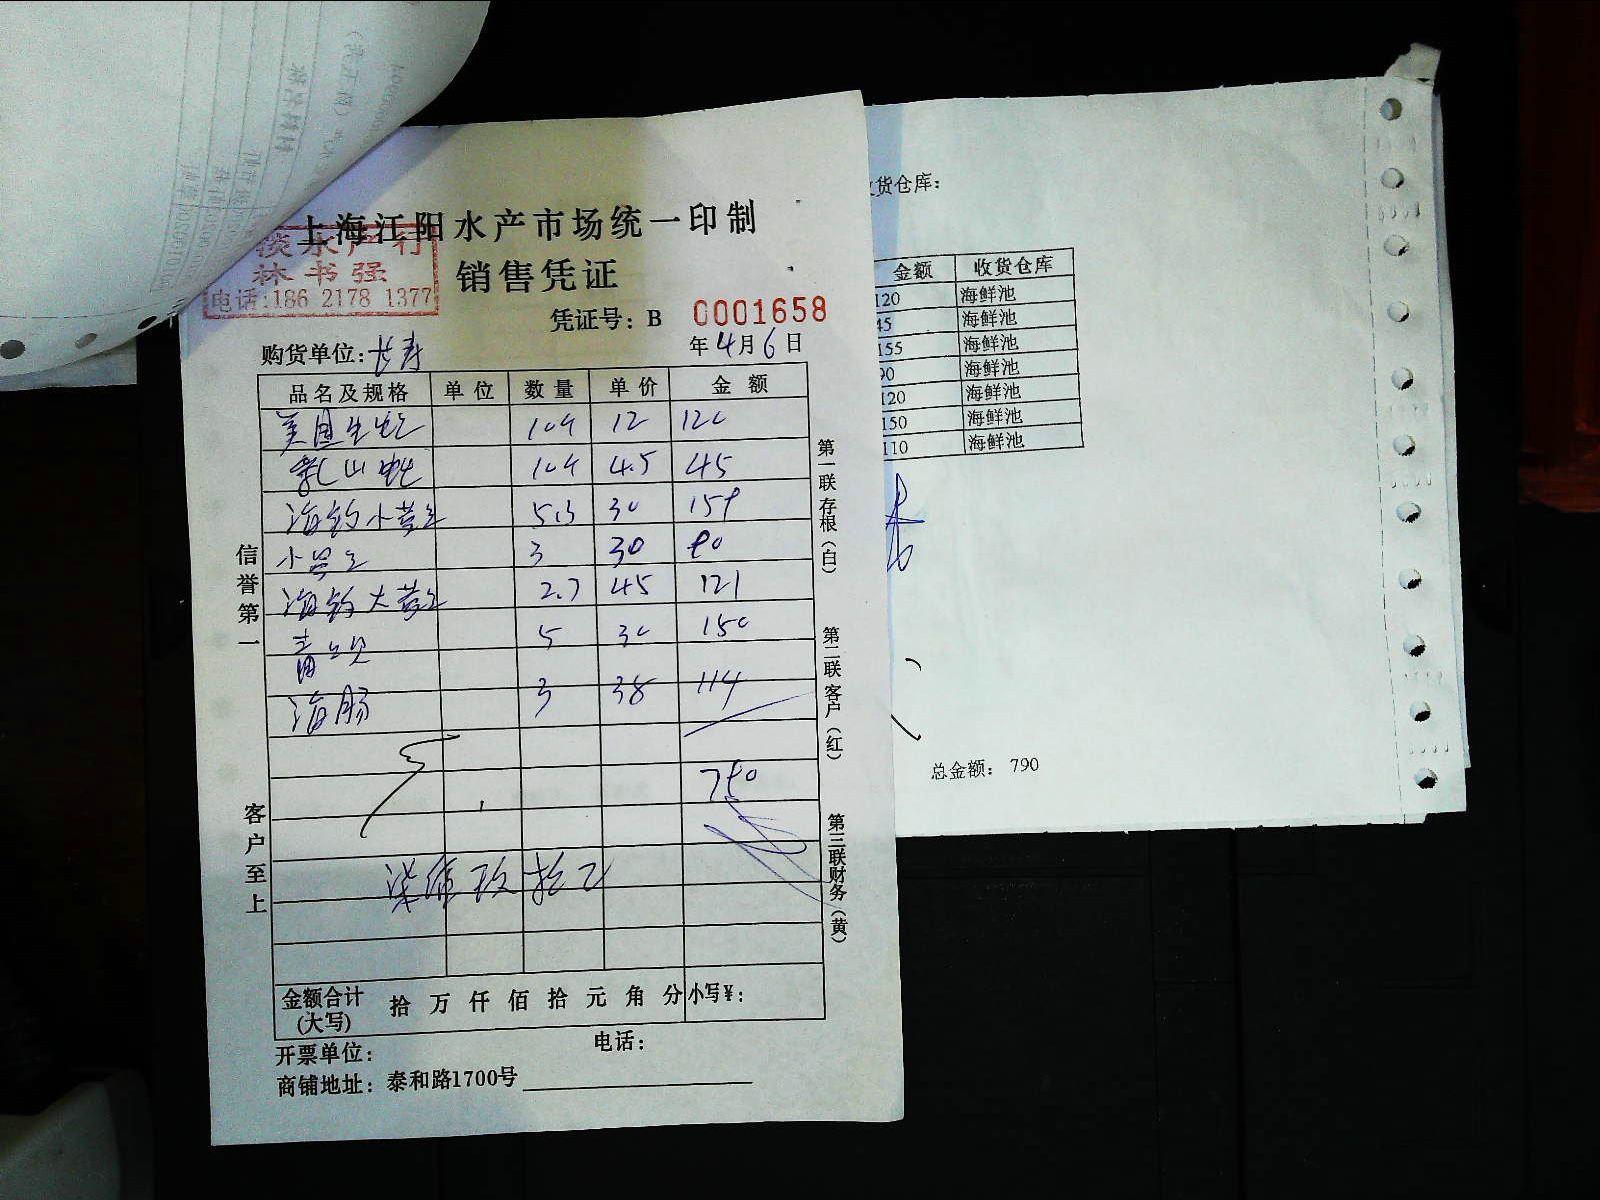 上海江阳水产市场统一印制
销售凭证
水产行
林书强
电话:186 2178 1377
凭证号：B 0001658
购货单位:长寿
年4月6日
品名及规格 单位 数量 单价 金额
美国生蚝 10只 12 120
乳山蚝 10只 4.5 45
海钓小黄 5.3 30 159
小 3 30 90
海钓大黄 2.7 45 121
青 5 30 150
海肠 3 38 114
790
柒佰玖拾
金额合计(大写) 拾 万 仟 佰 拾 元 角 分 小写¥:
开票单位:
电话:
商铺地址: 泰和路1700号
信誉第一
客户至上
第一联存根(白)
第二联客户(红)
第三联财务(黄)
货仓库:
金额 收货仓库
120 海鲜池
45 海鲜池
155 海鲜池
90 海鲜池
120 海鲜池
150 海鲜池
110 海鲜池
总金额: 790